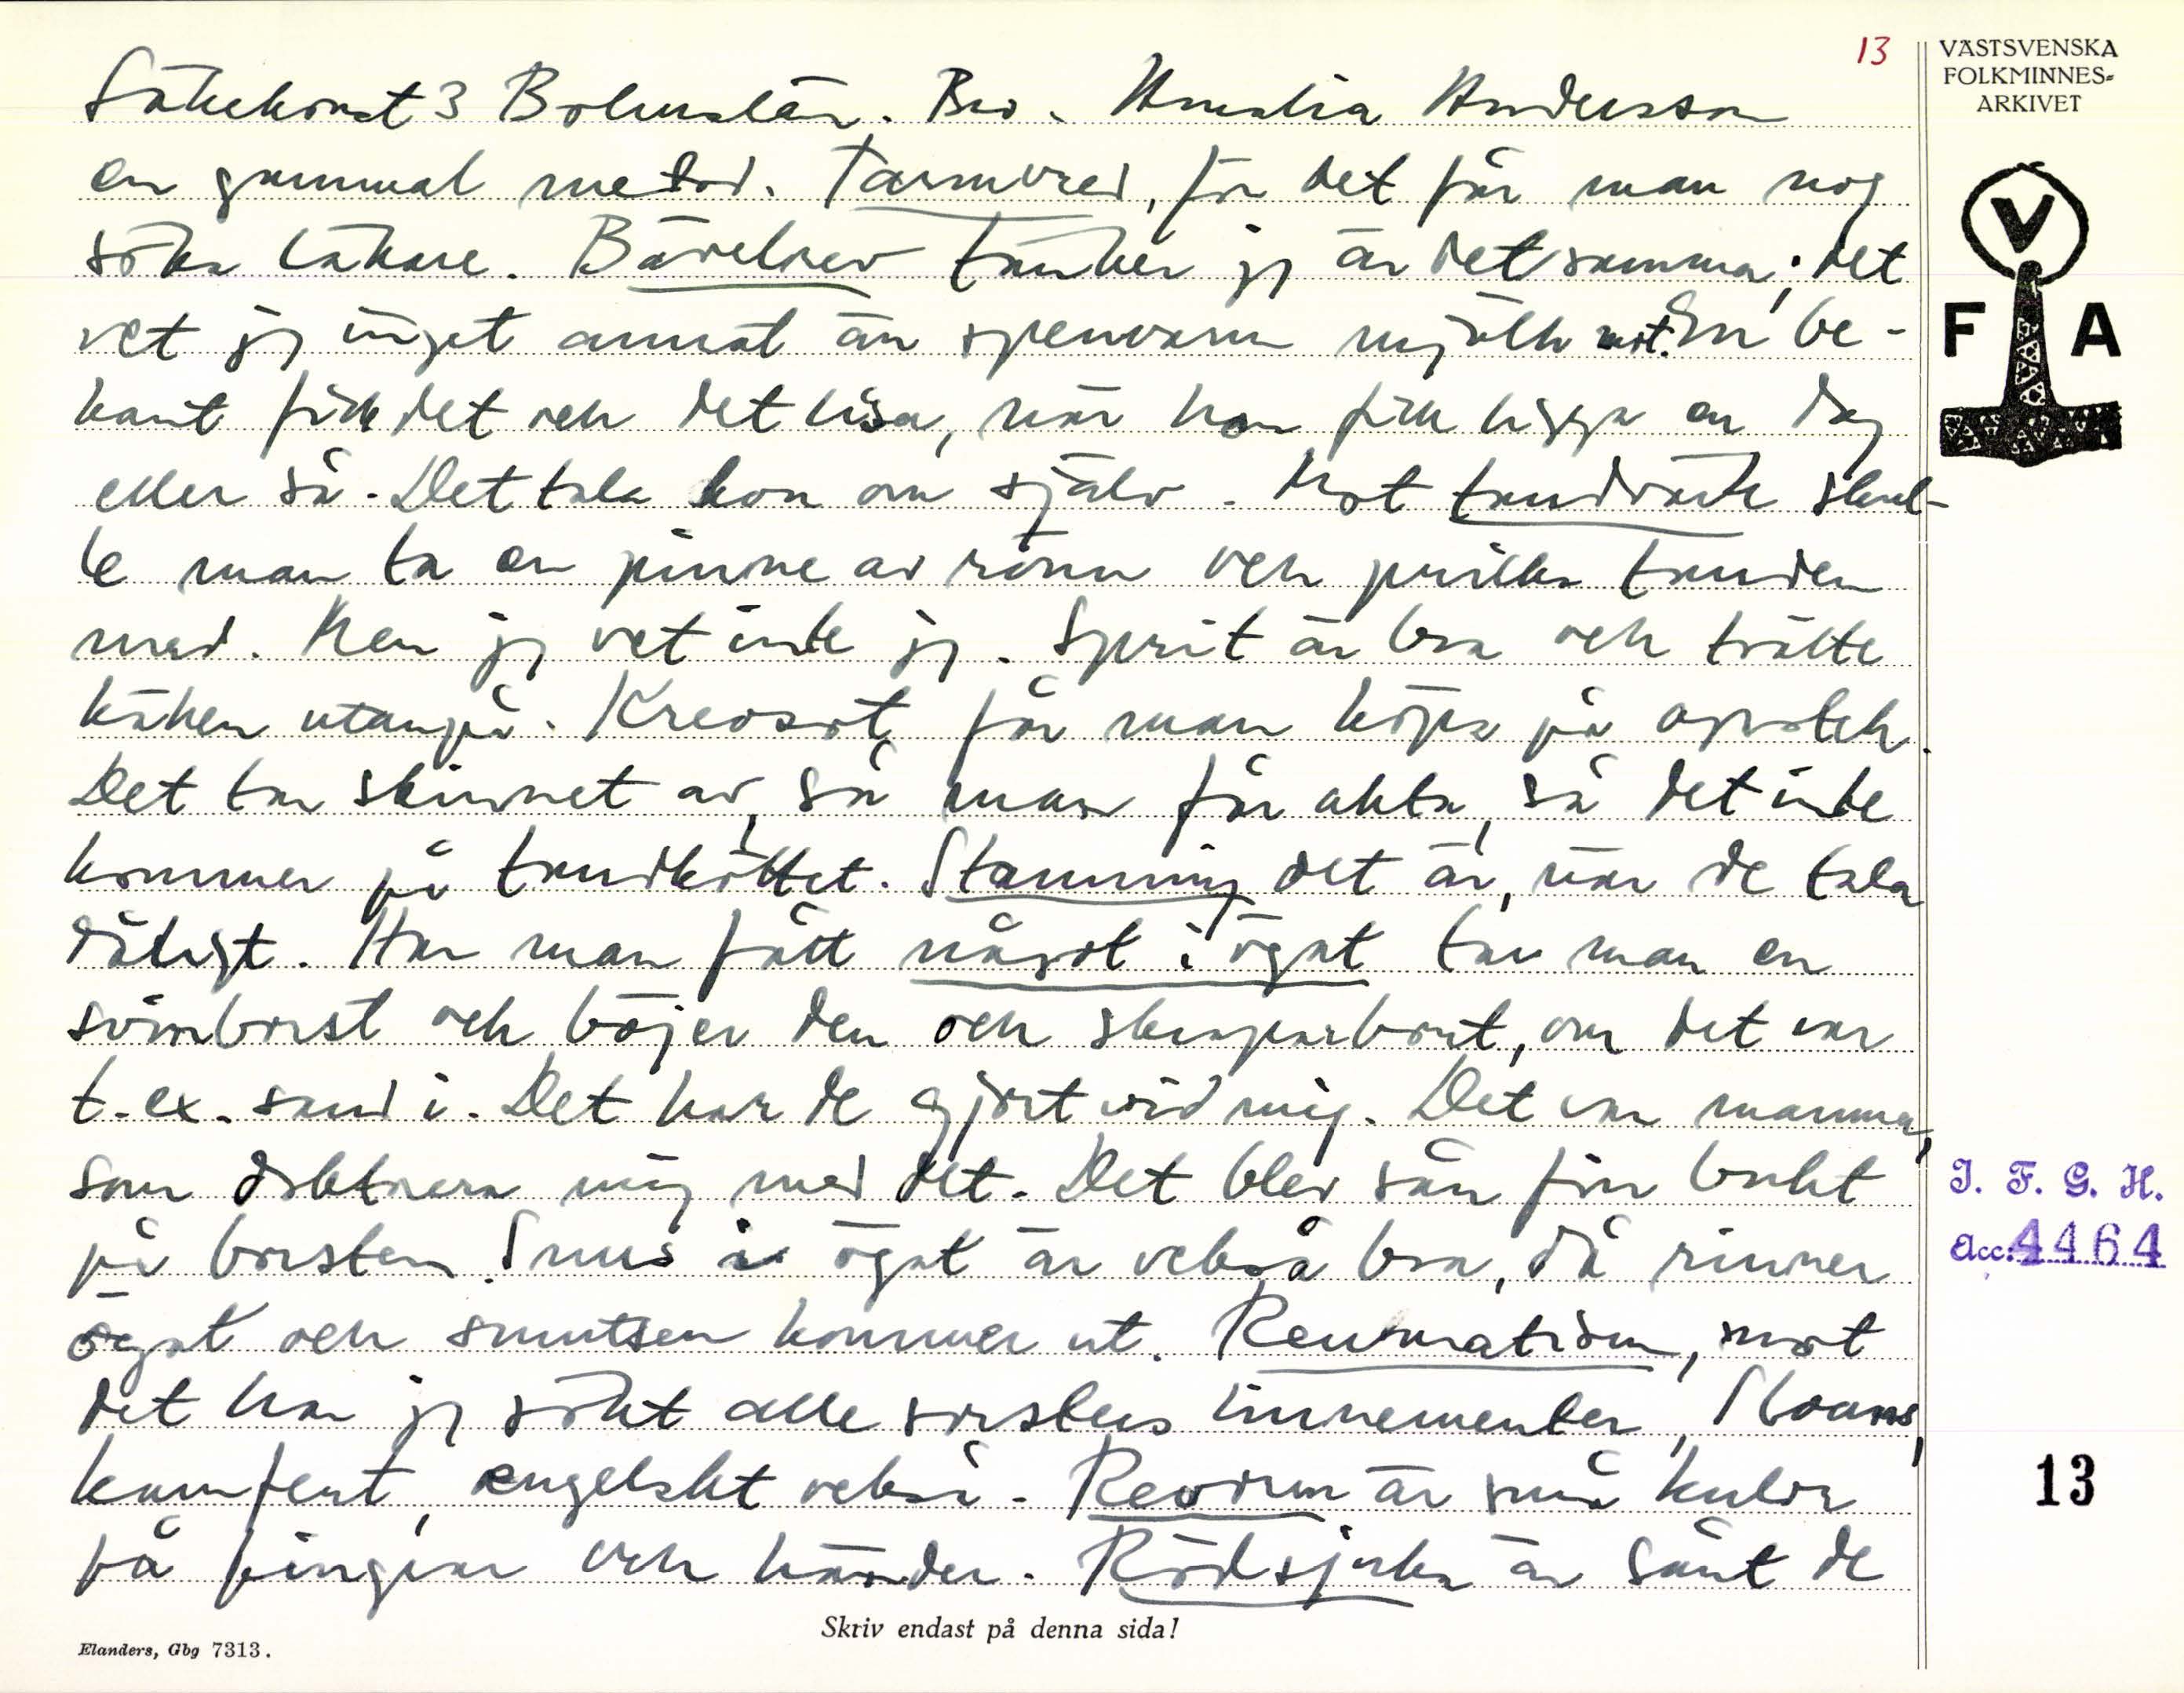 13
VÄSTSVENSKA
FOLKMINNES-
ARKIVET
Läkekonst 3 Bohuslän. Bro. Amalia Andersson
en gammal metod. Tarmvred, för det får man nog
söka läkare. Bärelsev tänker jg är det samma; det
vet jg inget annat än spenvarm mjölk mot. En be-
kant fick det och det lisa, när hon fick ligga en dag
eller så. Det tala hon om själv. Mot tandvärk skul-
le man ta en pinne av rönn och pricka tanden
med. Men jg vet inte jg. Sprit är bra och tvätte
käken utanpå. Kreosot får man köpa på apotek.
Det tar skinnet av, så man får akta, så det inte
kommer på tandköttet. Stamning det är, när de tala
dåligt. Har man fått något i ögat tar man en
svinborst och böjer den och skrapar bort, om det var
t. ex. sand i. Det har de gjort vid mig. Det var mamma,
som doktorera mig med det. Det blev sån fin bukt
på borsten. Snus i ögat är också bra, då rinner
ögat och smutsen kommer ut. Reumatism, mot
det har jg sökt alle sorsters linnementer, Sloans,
kamfert, engelskt också. Revorm är små kulor
på fingrar och händer. Rödsjuka är sånt de
V
F A
I. F. G. H.
Acc: 4464
13
Skriv endast på denna sida!
Elanders, Gbg 7313.